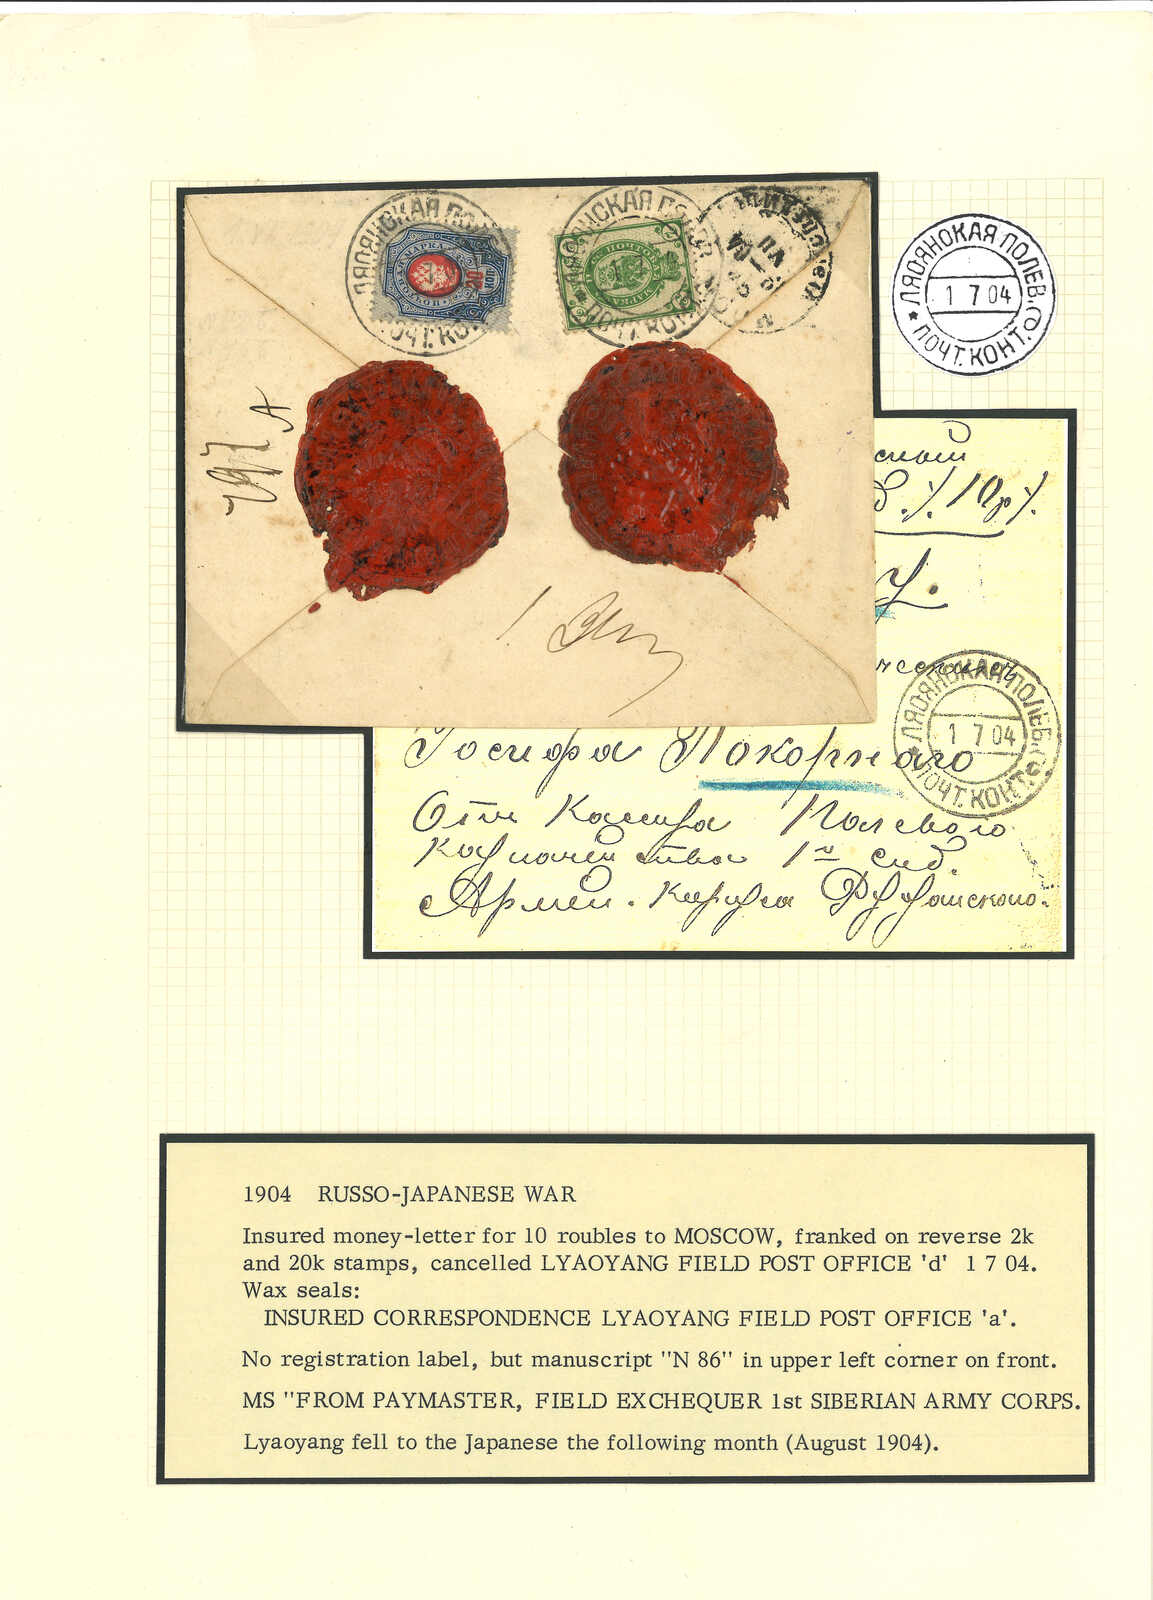 ЛЯОЯНСКАЯ ПОЛЕВ.
ПОЧТ. КОН
20 КОП
ПОЧТОВАЯ МАРКА
ЛЯОЯНСКАЯ ПОЛЕВ.
ПОЧТ. КОНТ.
1 7
ПОЧТОВАЯ
МАРКА
VII
04
ЛЯОЯНСКАЯ ПОЛЕВ.
1 7 04
ПОЧТ. КОНТ.
10 р
ЛЯОЯНСКАЯ ПОЛЕВ.
1 7 04
ПОЧТ. КОНТ.
Иосифа Покорнаго
Отъ Кассира Полевого
Казначейства 1го Сиб.
Армей. Корпуса
1904 RUSSO-JAPANESE WAR
Insured money-letter for 10 roubles to MOSCOW, franked on reverse 2k
and 20k stamps, cancelled LYAOYANG FIELD POST OFFICE 'd' 1 7 04.
Wax seals:
INSURED CORRESPONDENCE LYAOYANG FIELD POST OFFICE 'a'.
No registration label, but manuscript "N 86" in upper left corner on front.
MS "FROM PAYMASTER, FIELD EXCHEQUER 1st SIBERIAN ARMY CORPS.
Lyaoyang fell to the Japanese the following month (August 1904).